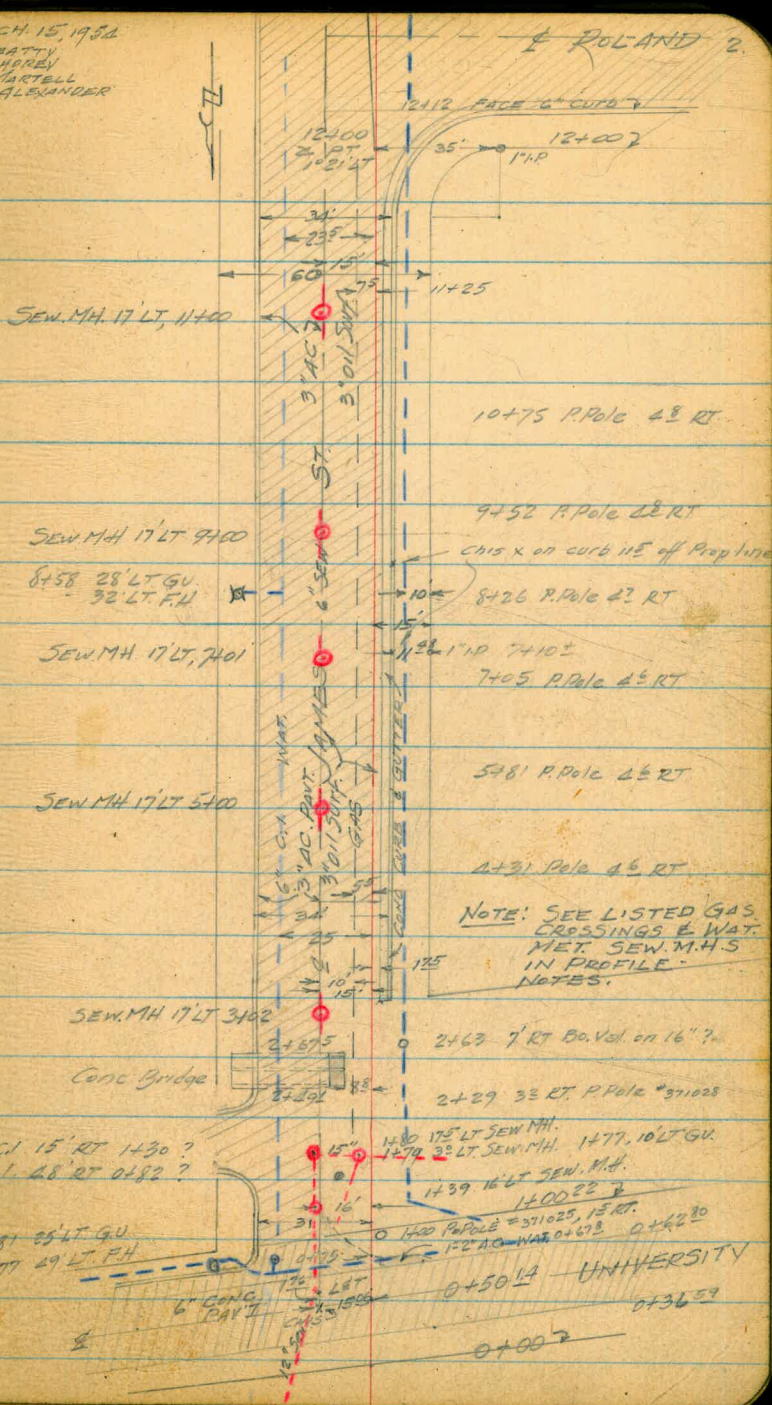 CH. 15, 1954
BATTY
MARTELL
ALEXANDER
℄ ROLAND 2.
12+12 FACE 6" CURB
12+00
∠ PT
1°21' LT
35'
12+00
1" I.P
34'
23⁵
15'
60
7⁵
11+25
SEW. MH. 17' LT, 11+00
3" AC
3" Oil Surf.
10+75 P.Pole 4⁸ RT
ST.
9+52 P.Pole 4⁸ RT
SEW MH 17' LT 9+00
Chis x on curb 11⁵ off Prop line
6" SEW
8+58 28' LT GV
32' LT. F.H
10'
8+26 P.Pole 4⁷ RT
15'
SEW MH 17' LT, 7+01
1" I.P 7+10±
7+05 P.Pole 4⁶ RT
JAMES
5+81 P.Pole 4⁶ RT
SEW MH 17' LT 5+00
6" C.I. WAT.
3" AC. PAVT.
3" Oil Surf.
GAS
CONC CURB & GUTTER
4+31 Pole 4⁶ RT
5⁵
34'
25
NOTE: SEE LISTED GAS
CROSSINGS & WAT.
MET. SEW. M.H.S
IN PROFILE
NOTES.
17⁵
10'
15'
SEW. MH 17' LT 3+02
2+67⁵
2+63 7' RT Bo. Val. on 16" ?
Conc Bridge
2+49¹
8⁸
2+29 3³ RT. P.Pole #371028
15' RT 1+30 ?
48' RT 0+82 ?
15"
1+80 17⁵ LT SEW MH.
1+79 3⁰ LT. SEW. MH. 1+77, 10' LT GV.
1+39 16' LT SEW. M.H.
16'
1+00²²
31
1+00 P.POLE #371025, 1⁵ RT.
25' LT GV
49' LT F.H
0+75
1-2" AC WAT. 0+67⁸
0+62⁸⁰
UNIVERSITY
0+50¹⁴
6" CONC
PAV'T
0+36⁵⁹
12" SEW
℄
0+00